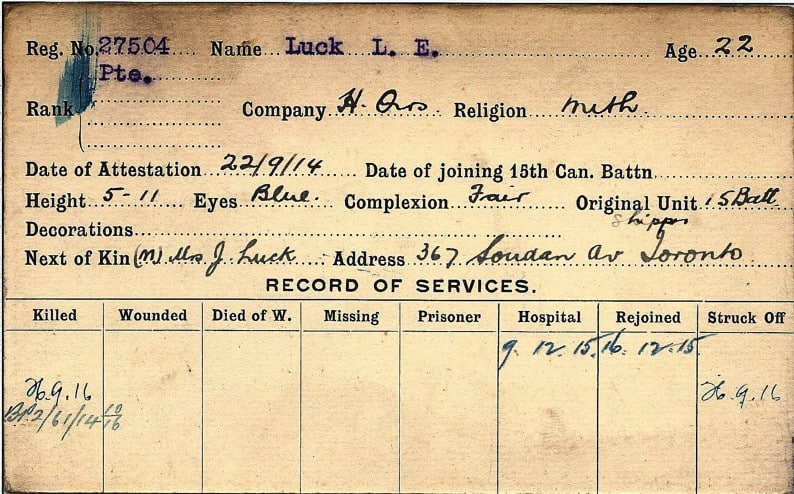 Reg. No. 27504 Name Luck L. E. Age 22
Pte.
Rank Company H. Qrs Religion Meth
Date of Attestation 22/9/14 Date of joining 15th Can. Battn.
Height 5-11 Eyes Blue. Complexion Fair Original Unit 15 Batt
Decorations
Next of Kin (M) Mrs J. Luck Address 367 Soudan Av Toronto
RECORD OF SERVICES.
Killed Wounded Died of W. Missing Prisoner Hospital Rejoined Struck Off
9. 12. 15. 16. 12. 15.
26.9.16 26.9.16